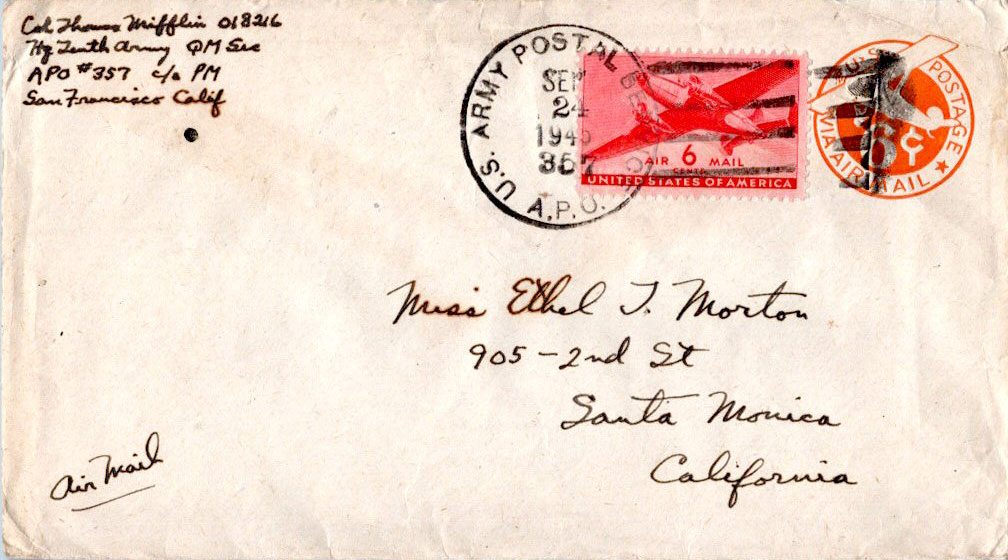 Col Thomas Mifflin 018216
Hq Tenth Army QM Sec
APO #357 c/o PM
San Francisco Calif
U.S. ARMY POSTAL SERVICE
A.P.O.
SEP
24
1945
357
AIR 6 MAIL
CENTS
UNITED STATES OF AMERICA
U.S. POSTAGE
6¢
VIA AIR MAIL
Miss Ethel T. Morton
905-2nd St
Santa Monica
California
Air Mail